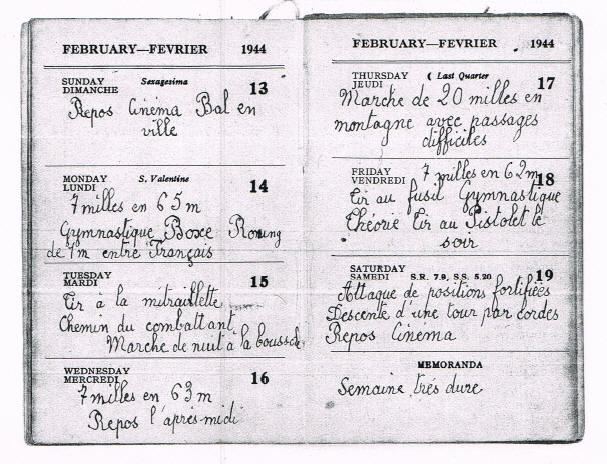 FEBRUARY—FEVRIER 1944
SUNDAY Sexagesima 13
DIMANCHE
Repos Cinéma Bal en
ville
MONDAY S. Valentine 14
LUNDI
7 milles en 65 m
Gymnastique Boxe
de 1m entre Français
TUESDAY 15
MARDI
Tir à la mitraillette
Chemin du combattant
Marche de nuit à la boussole
WEDNESDAY 16
MERCREDI
7 milles en 63 m
Repos l'après-midi
FEBRUARY—FEVRIER 1944
THURSDAY ( Last Quarter 17
JEUDI
Marche de 20 milles en
montagne avec passages
difficiles
FRIDAY 18
VENDREDI
7 milles en 62m
Tir au fusil Gymnastique
Théorie Tir au Pistolet le
soir
SATURDAY 19
SAMEDI S.R. 7.9, S.S. 5.20
Attaque de positions fortifiées
Descente d'une tour par cordes
Repos Cinéma
MEMORANDA
Semaine très dure